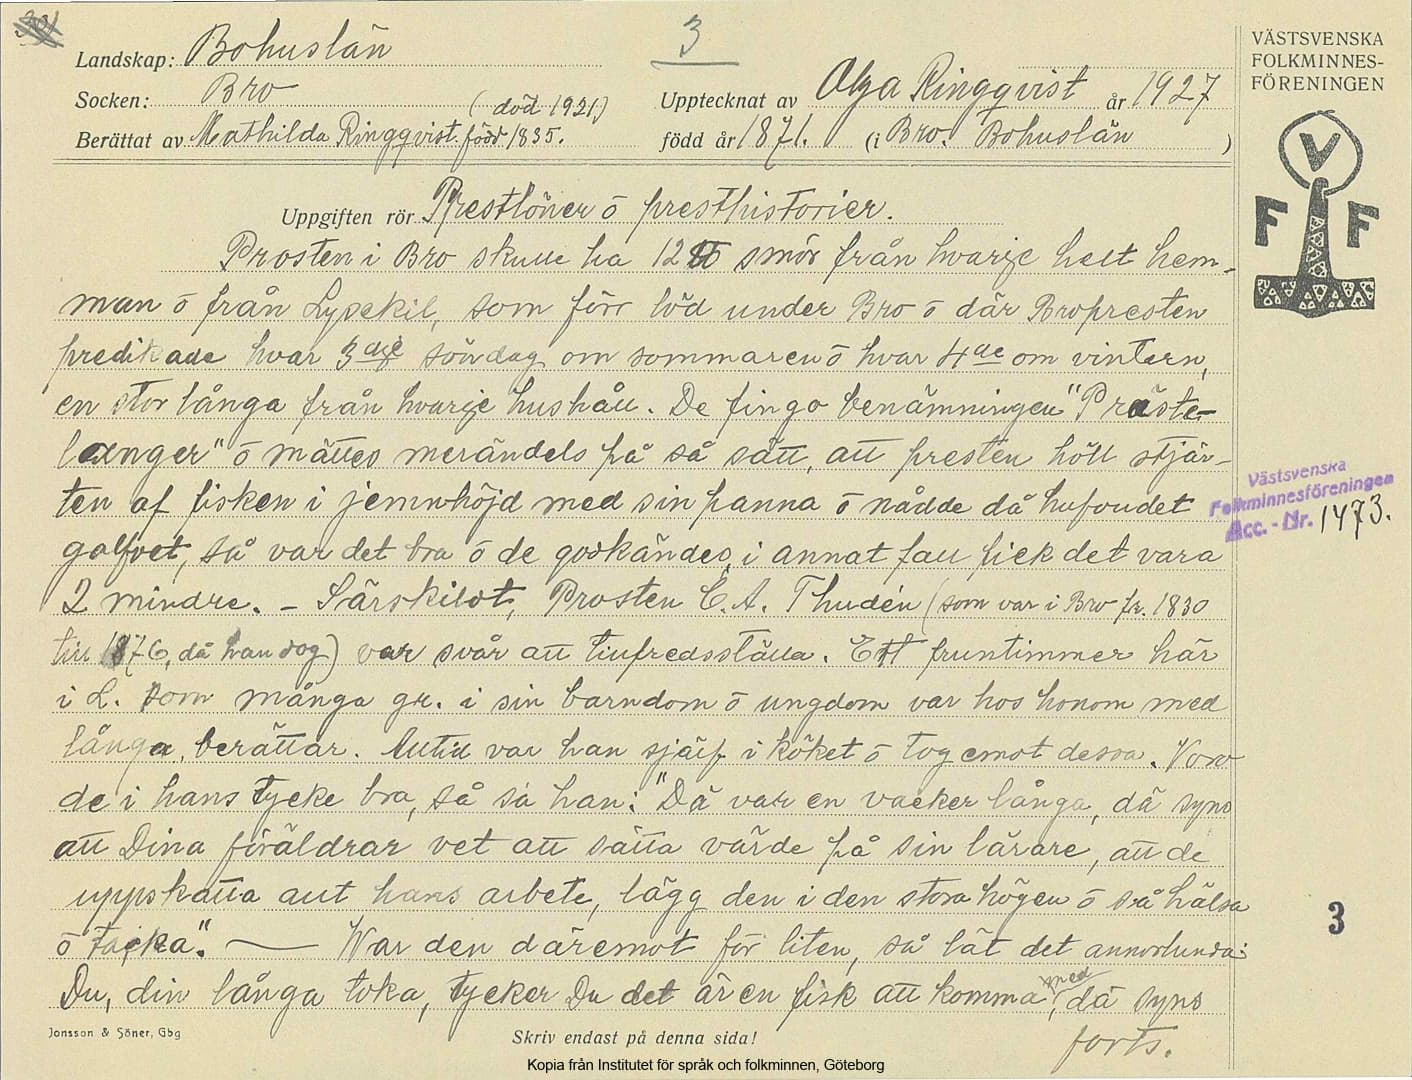 Landskap: Bohuslän
3
VÄSTSVENSKA
FOLKMINNES-
FÖRENINGEN
Socken: Bro
(död 1921.)
Upptecknat av Olga Ringqvist år 1927
Berättat av Mathilda Ringqvist. född 1835.
född år 1871. (i Bro. Bohuslän )
V
F F
Uppgiften rör Prestlöner ō presthistorier.
Prosten i Bro skulle ha 12 ℔ smör från hvarje helt hem-
man ō från Lysekil, som förr löd under Bro ō där Bropresten
predikade hvar 3dje söndag om sommaren ō hvar 4de om vintern,
en stor långa från hvarje hushåll. De fingo benämningen "Präste-
langer" ō mättes merändels på så sätt, att presten höll stjär-
ten af fisken i jemnhöjd med sin panna ō nådde då hufvudet
golfvet, så var det bra ō de godkändes, i annat fall fick det vara
2 mindre. – Särskildt, Prosten C. A. Thudén (som var i Bro fr. 1830
till 1876, då han dog) var svår att tillfredsställa. Ett fruntimmer här
i L. som många gr. i sin barndom ō ungdom var hos honom med
långa, berättar. Alltid var han sjelf i köket ō tog emot dessa. Voro
de i hans tycke bra, så sa han: "Dä var en vacker långa, dä syns
att Dina föräldrar vet att sätta värde på sin lärare, att de
uppskatta allt hans arbete, lägg den i den stora högen ō så hälsa
ō tacka". — War den däremot för liten, så lät det annorlunda:
Du, din långa toka, tycker Du det är en fisk att komma med, dä syns
forts.
Västsvenska
Folkminnesföreningen
Acc. - Nr. 1473.
3
Jonsson & Söner, Gbg
Skriv endast på denna sida!
Kopia från Institutet för språk och folkminnen, Göteborg